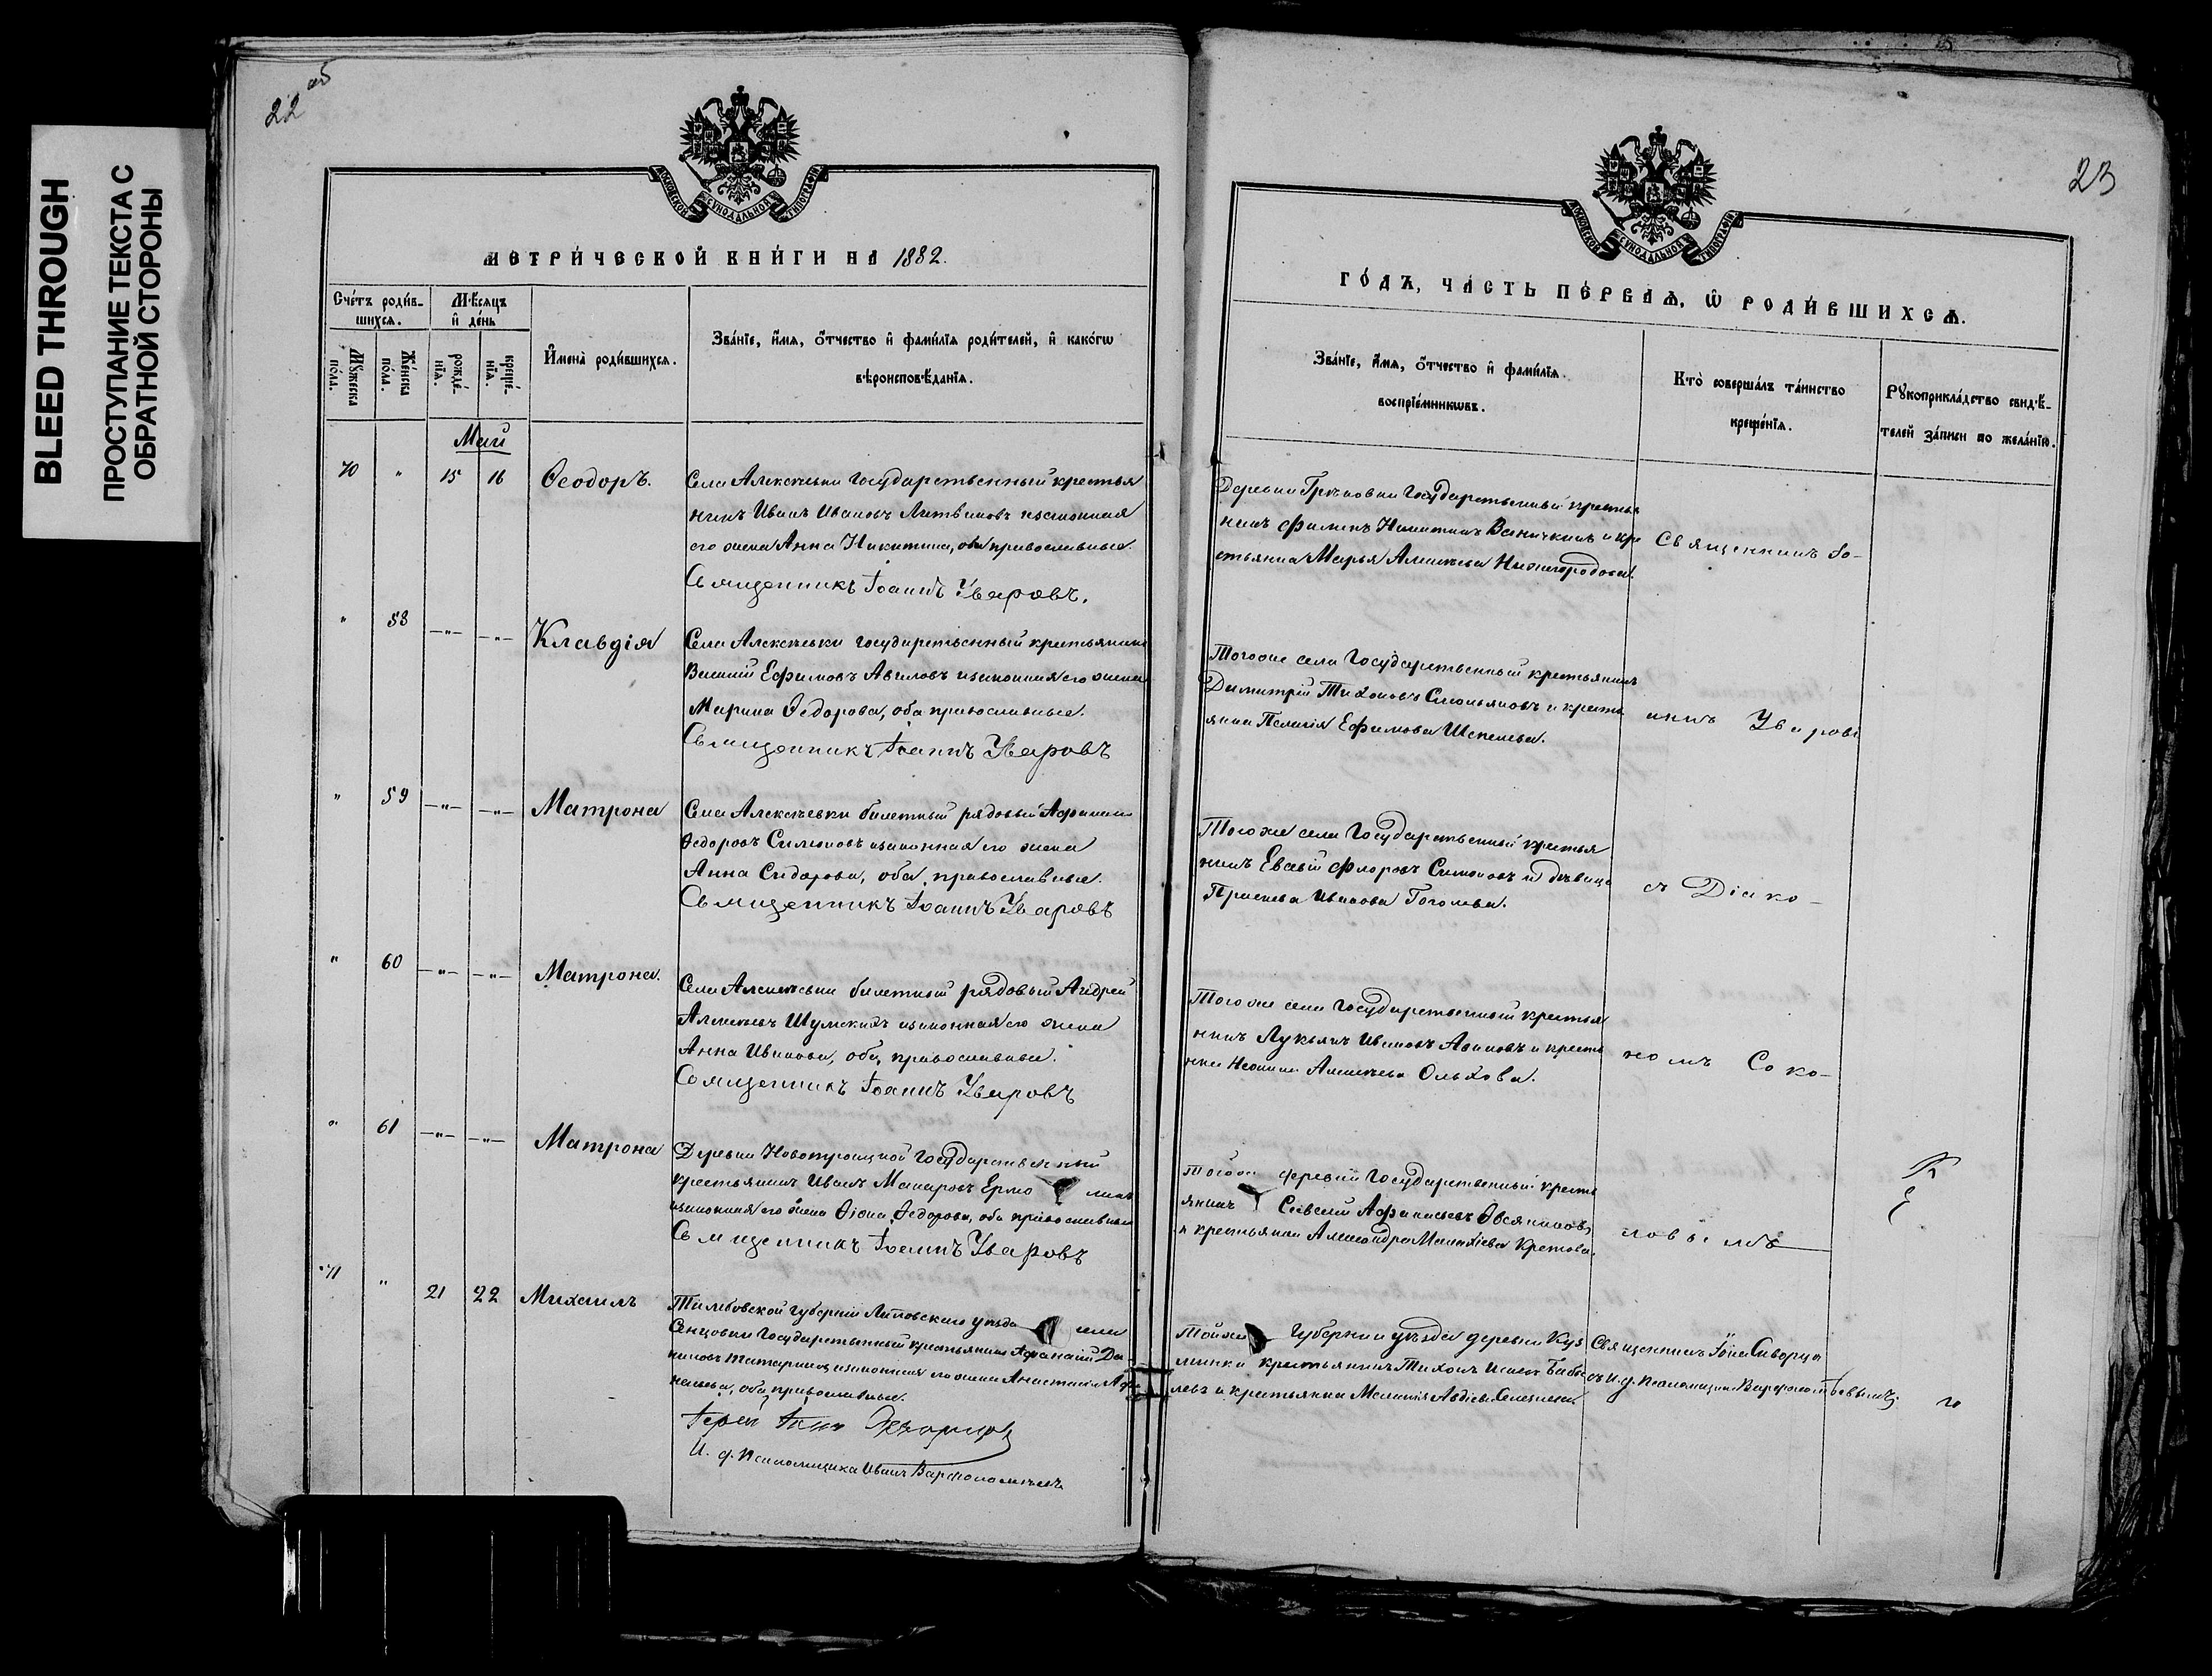 BLEED THROUGH
ПРОСТУПАНИЕ ТЕКСТА С
ОБРАТНОЙ СТОРОНЫ
22 об
МОСКОВСКОЙ СУНОДАЛЬНОЙ ТИПОГРАФІИ
МЕТРИ́ЧЕСКОЙ КНИ́ГИ НА 1882.
Сче́тъ роди́в-
шихся.
Мѣ́сяцъ
и҆ де́нь
Мꙋ́жеска
по́ла.
Же́нска
по́ла.
рожде́-
нїѧ.
креще́-
нїѧ.
И҆мена̀ роди́вшихсѧ.
Зва́нїе, и҆́мѧ, ѻ҆́тчество и҆ фами́лїѧ роди́телей, и҆ како́гѡ
вѣроисповѣ́данїѧ.
Май
70 " 15 16 Ѳеодоръ.
Села Алексѣевки государственный крестья
нинъ Иванъ Ивановъ Литвиновъ и законная
его жена Анна Никитина, оба православные.
Священникъ Іоаннъ Уваровъ.
" 58 —"— —"— Клавдія
Села Алексѣевки государственный крестьянинъ
Василій Ефимовъ Авиловъ и законная его жена
Марина Ѳедорова, оба православные.
Священникъ Іоаннъ Уваровъ
" 59 —"— —"— Матрона
Села Алексѣевки билетный рядовый
Ѳедоровъ Симоновъ и законная его жена
Анна Сидорова, оба православные.
Священникъ Іоаннъ Уваровъ
" 60 —"— —"— Матрона.
Села Алексѣевки билетный рядовый Андрей
Алексѣевъ Шумскихъ и законная его жена
Анна Иванова, оба православные.
Священникъ Іоаннъ Уваровъ
" 61 —"— —"— Матрона
Деревни Новотроицкой Государственный
крестьянинъ Иванъ Макаровъ
и законная его жена Ѳедорова, оба православные
Священникъ Іоаннъ Уваровъ
71 " 21 22 Михаилъ
Тамбовской губерніи Липовскаго уѣзда села
Сенцовки Государственный крестьянинъ Афанасій Да-
ниловъ и законная его жена Анастасія Афа
насьева, оба православные.
Іерей
И. д. псаломщика Иванъ Варфоломѣевъ
23
МОСКОВСКОЙ СУНОДАЛЬНОЙ ТИПОГРАФІИ
ГО́ДЪ, ЧА́СТЬ ПЕ́РВАѦ, Ѽ РОДИ́ВШИХСѦ.
Зва́нїе, и҆́мѧ, ѻ҆́тчество и҆ фами́лїѧ.
воспрїе́мникѡвъ.
Кто̀ соверша́лъ та́инство
креще́нїѧ.
Рꙋкоприкла́дство свидѣ́-
телей за́писи по жела́нїю.
Деревни Грязновки Государственный крестья
нинъ Филипъ Никитинъ и кре
стьянка Марья Алексѣева Нижегородова.
Тогоже села Государственный крестьянинъ
Димитрій Тихоновъ Смольяновъ и кресть
янка Пелагія Ефимова Шепелева.
Тогоже села Государственный крестья
нинъ Евсѣй Флоровъ Симоновъ и дѣвица
Иванова Гоголева.
Тогоже села Государственный крестья
нинъ Лукьянъ Ивановъ и крестья
нка Алексѣева Ольхова.
Тогоже деревни Государственный кресть
янинъ Савелій Афанасьевъ Овсяниковъ
и крестьянка Александра Малахіева Кретова.
Тойже губерніи и уѣзда деревни Куз
минки крестьянинъ Тихонъ
левъ и крестьянка Авдіева
Священникъ Іо-
аннъ Уваровъ
съ Діако-
номъ Соко-
ловымъ
Священникъ Іоаннъ Скворцо
въ и. д. псаломщика Варфоломѣевымъ.